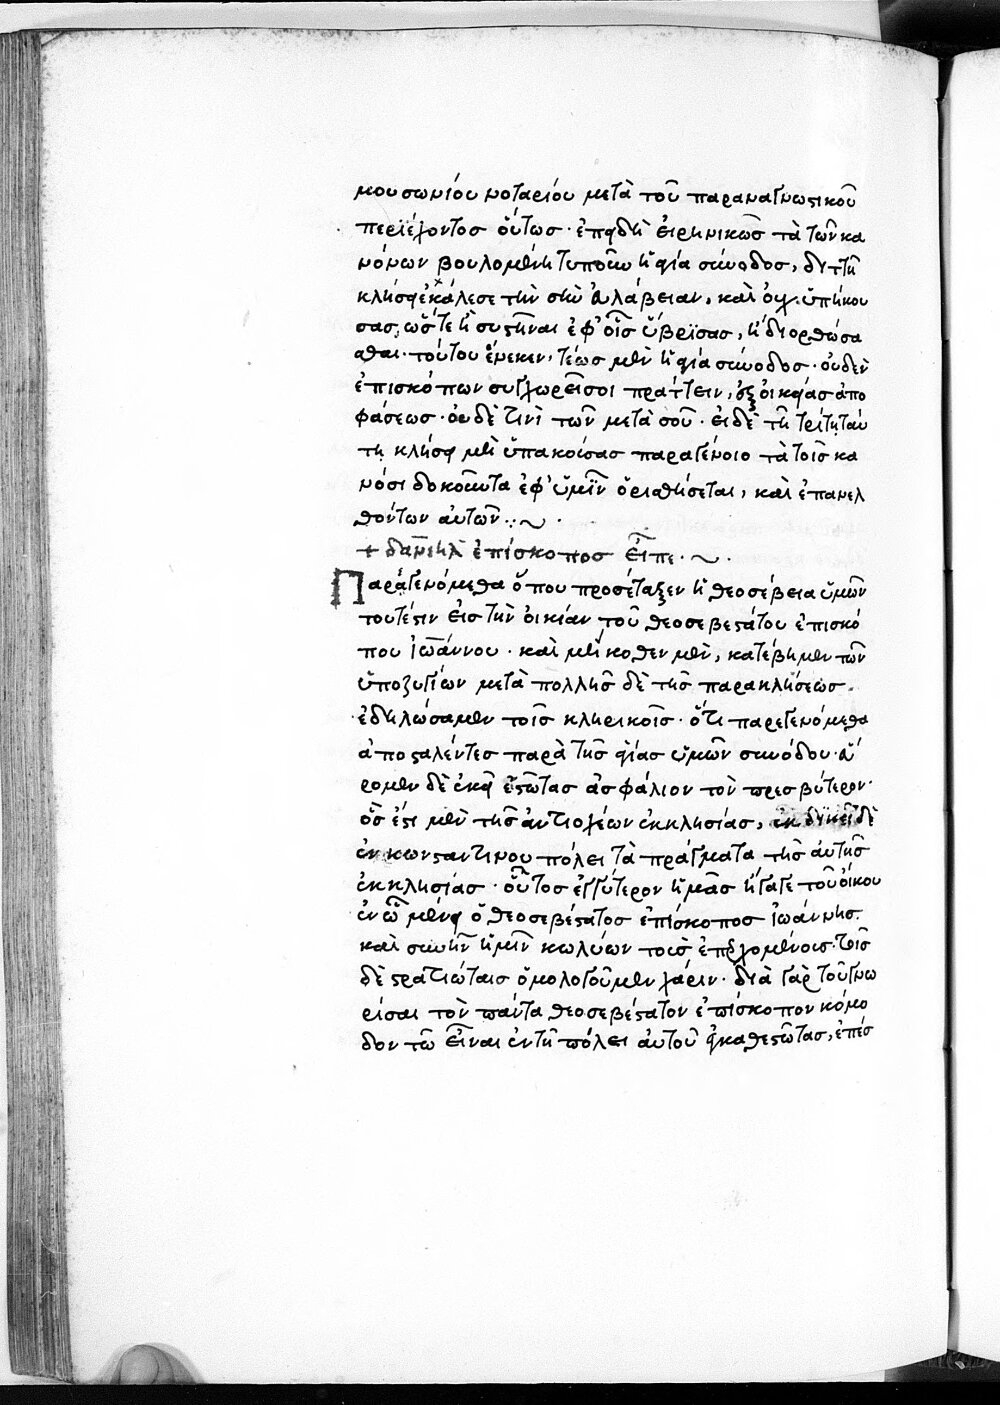 μουσωνίου νοταρίου μετὰ τοῦ παραναγνωστικοῦ
περιέχοντος οὕτως· ἐπειδὴ εἰρηνικῶς τὰ τῶν κα
νόνων βουλομένη τυποῦν ἡ ἁγία σύνοδος, δευτέρᾳ
κλήσει ἐκάλεσε τὴν σὴν εὐλάβειαν, καὶ οὐχ ὑπήκου
σας, ὥστε ἢ συστῆναι ἐφ' οἷς ὕβρϊσας, ἢ διορθώσα
σθαι· τούτου ἕνεκεν, τέως μὲν ἡ ἁγία σύνοδος· οὐδὲν
ἐπισκόπων συγχωρεῖ σοι πράττειν, ἐξ οἰκείας ἀπο
φάσεως· οὐδὲ τινὶ τῶν μετὰ σοῦ· εἰ δὲ τῇ τρίτῃ ταύ
τῃ κλήσει μὴ ὑπακοίσας παραγένοιο τὰ τοῖς κα
νόσι δοκοῦντα ἐφ' ὑμῖν ὁρισθήσεται, καὶ ἐπανελ
θόντων αὐτῶν :~
+ δανιὴλ ἐπίσκοπος εἶπε· ~
Παραγενόμεθα ὅπου προσέταξεν ἡ θεοσέβεια ὑμῶν
τουτέστιν εἰς τὴν οἰκίαν τοῦ θεοσεβεστάτου ἐπισκό
που ἰωάννου· καὶ μήκοθεν μὲν, κατέβημεν τῶν
ὑποζυγίων μετὰ πολλῆς δὲ τῆς παρακλήσεως
ἐδηλώσαμεν τοῖς κληρικοῖς· ὅτι παρεγενόμεθα
ἀποσταλέντες παρὰ τῆς ἁγίας ὑμῶν συνόδου· εὕ
ρομεν δὲ ἐκεῖ ἑστῶτας ἀσφάλιον τὸν πρεσβύτερον·
ὅς ἐστι μὲν τῆς ἀντιοχέων ἐκκλησίας, ἐκδικεῖ δὲ
ἐν κωνσταντινουπόλει τὰ πράγματα τῆς αὐτῆς
ἐκκλησίας· οὗτος ἐγγύτερον ἡμᾶς ἤγαγε τοῦ οἴκου
ἐν ᾧ μένει ὁ θεοσεβέστατος ἐπίσκοπος ἰωάννης·
καὶ συνῆν ἡμῖν κωλύων τοὺς ἐπερχομένους· τοῖς
δὲ στρατιώταις ὁμολογοῦμεν χάριν· διὰ γὰρ τοῦ γνω
ρίσαι τὸν πάντα θεοσεβέστατον ἐπίσκοπον κόμο
δον τῶ εἶναι ἐν τῇ πόλει αὐτοῦ ἐκαθεστῶτας, ἐπέσ